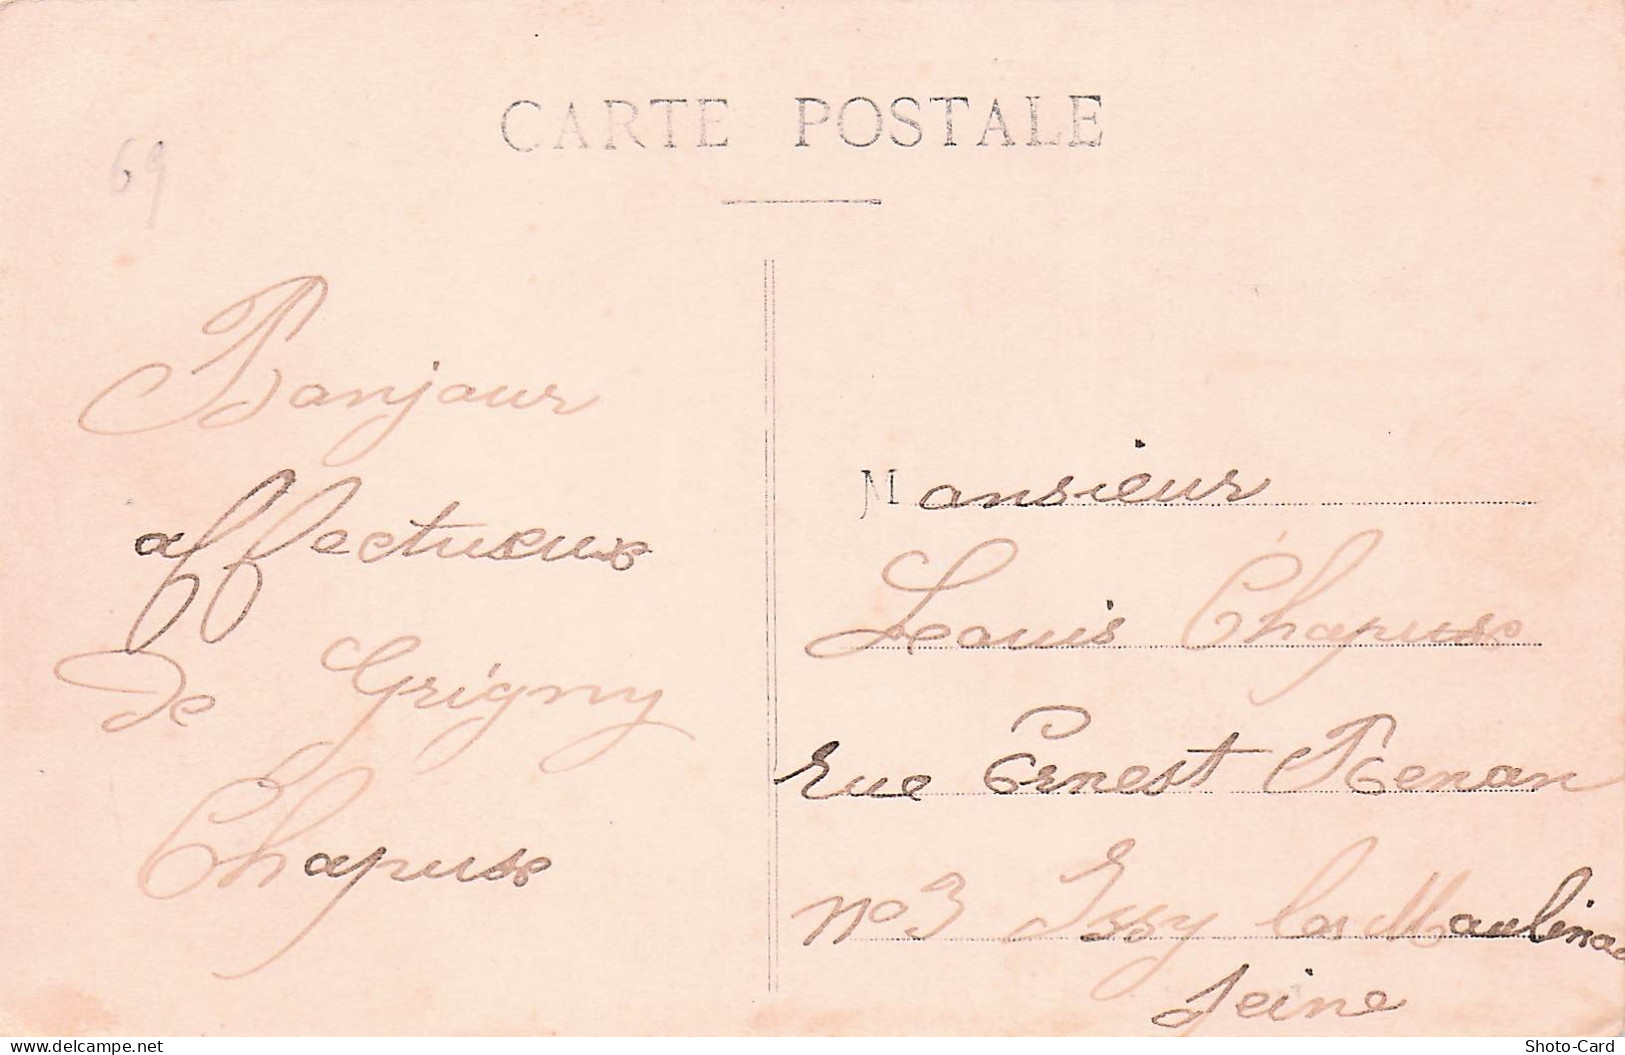 CARTE POSTALE
69
Bonjour
affectueux
de Grigny
Chapux
Monsieur
Louis Chapux
rue Ernest Renan
no 3 Issy les Moulineau
Seine
www.delcampe.net
Shoto-Card